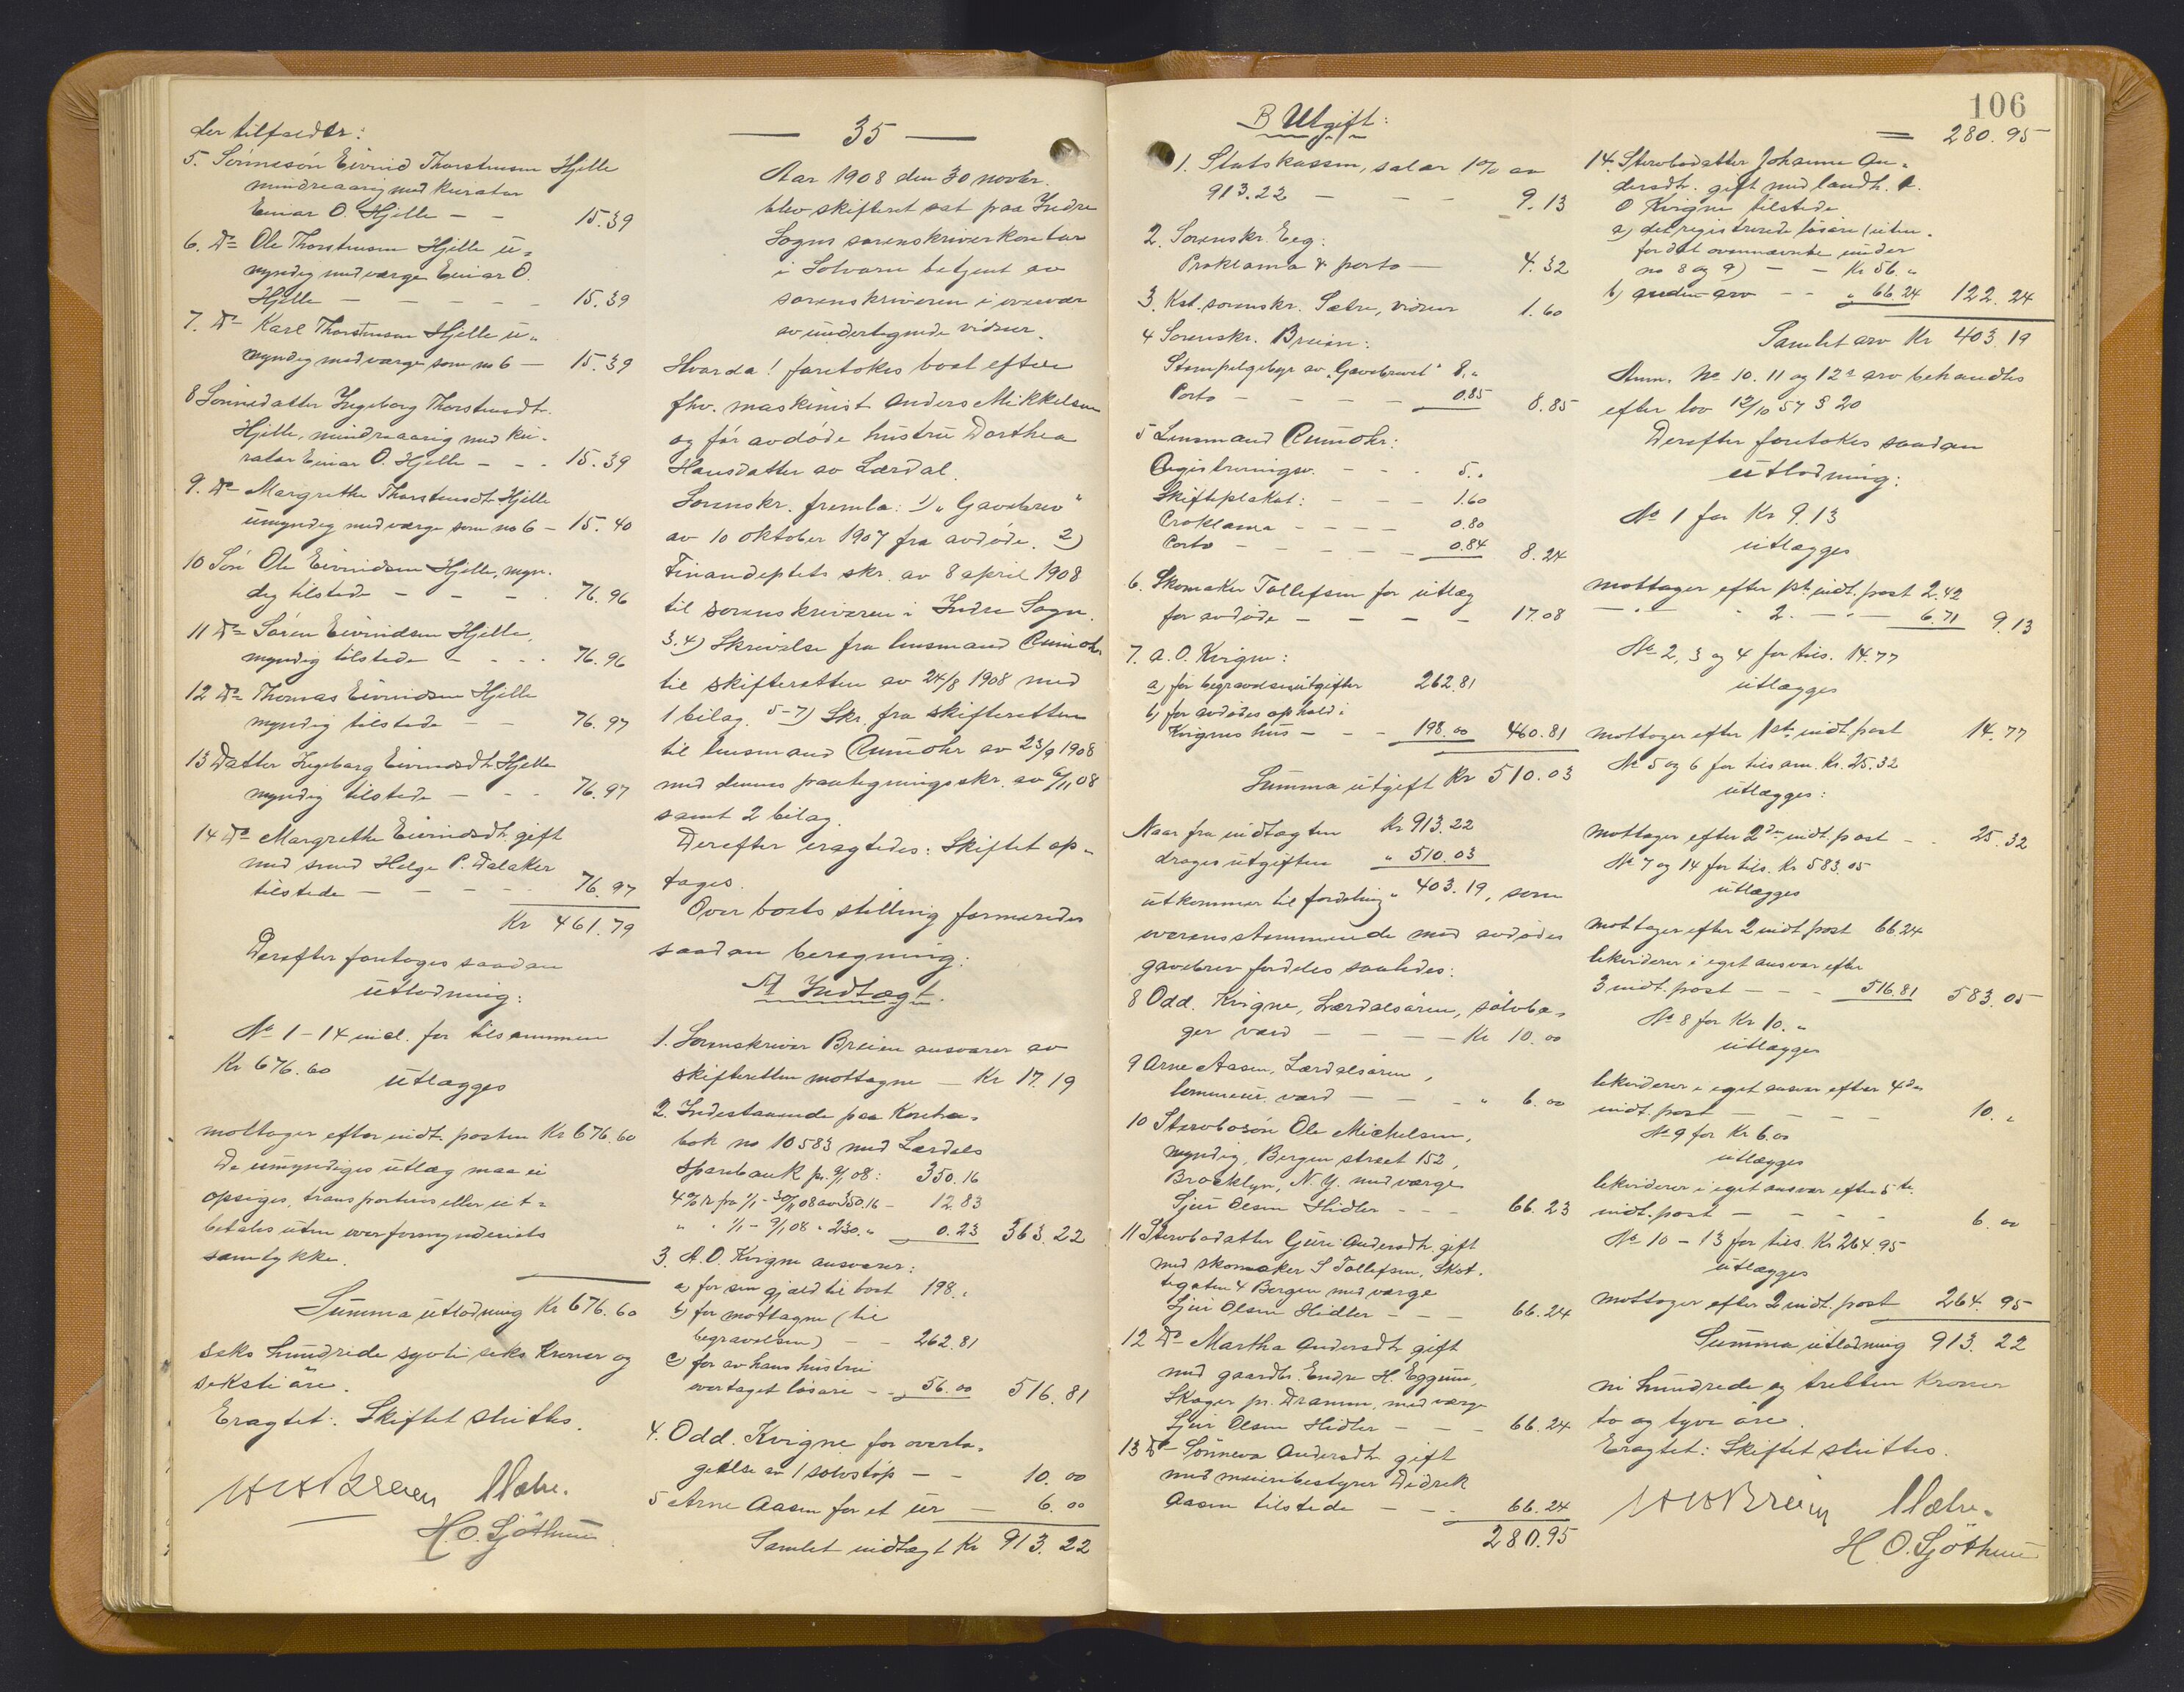 der tilfalder:
5. Sönnesön Eivind Thorstensen Hjelle
mindreaarig med kurator
Einar O. Hjelle - - 15.39
6. Do Ole Thorstensen Hjelle u-
myndig med værge Einar O.
Hjelle - - - - - 15.39
7. Do Karl Thorstensen Hjelle u-
myndig med værge som no 6 - 15.39
8 Sönnedatter Ingeborg Thorstensdtr.
Hjelle, mindreaarig med ku-
rator Einar O. Hjelle - - - 15.39
9. Do Margrethe Thorstensdtr Hjelle
umyndig med værge som no 6 - 15.40
10 Sön Ole Eivindsen Hjelle, myn-
dig tilstede - - - . 76.96
11 Do Sören Eivindsen Hjelle,
myndig tilstede - - - . 76.96
12 Do Thomas Eivindsen Hjelle
myndig tilstede - - 76.97
13 Datter Ingeborg Eivindsdtr Hjelle
myndig tilstede - - - 76.97
14 Do Margrethe Eivindsdtr. gift
med smed Helge P. Dalaker
tilstede - - - - - 76.97
Kr 461.79
Derefter foretoges saadan
utlodning:
No 1 - 14 incl. for tilsammen
Kr 676.60
utlægges
mottager efter indt. posten Kr 676.60
De umyndiges utlæg maa ei
opsiges, transporteres eller ut-
betales uten overformynderiets
samtykke.
Summa utlodning Kr 676.60
seks hundrede sytti seks Kroner og
seksti öre.
Eragtet: Skiftet sluttes.
Breien Sætre.
H. O. Sjöthun
— 35 —
Aar 1908 den 30 novbr.
blev skifteret sat paa Indre
Sogns sorenskriverkontor
i Solvorn betjent av
sorenskriveren i overvær
av undertegnede vidner.
Hvorda! foretokes boet efter
fhv. maskinist Anders Mikkelsen
og för avdöde hustru Dorthea
Hansdatter av Lærdal.
Sorenskr. fremla: 1) "Gavebrev"
av 10 oktober 1907 fra avdöde. 2)
Finansdeptets skr. av 8 april 1908
til sorenskriveren i Indre Sogn.
3.4) Skrivelse fra lensmand Rumohr
til skifteretten av 24/8 1908 med
1 bilag. 5-7) Skr. fra skifteretten
til lensmand Rumohr av 23/9 1908
med dennes paategningsskr. av 6/11 08
samt 2 bilag.
Derefter eragtedes: Skiftet op-
tages.
Over boets stilling formeredes
saadan beregning:
A Indtægt.
1. Sorenskriver Breien ansvarer av
skifteretten mottagne - Kr 17.19
2. Indestaaende paa Kontra-
bok no 10583 med Lærdals
sparebank pr. 9/1 08: 350.16
4% r. fra 1/1 - 30/11 08 av 350.16 - 12.83
" " 1/1 - 9/1 08 " 230." 0.23 363.22
3. A. O. Kvigne ansvarer:
a) for sin gjæld til boet 198."
b) for mottagne (til
begravelsen) - - 262.81
c) for av hans hustru
overtaget lösöre - " 56.00 516.81
4. Odd. Kvigne for overta-
gelse av 1 sölvstöp - - 10.00
5 Arne Aasen for et ur - 6.00
Samlet indtægt Kr 913.22
B Utgift:
1. Statskassen, salær 1% av
913.22 - - - 9.13
2. Sorenskr. Eeg:
Proklama & porto - 4.32
3. Kst. sorenskr. Sætre, vidner 1.60
4 Sorenskr. Breien:
Stempelgebyr av "Gavebrevet" 8."
Porto - - - - 0.85 8.85
5 Lensmand Rumohr:
Registreringsv. - - - 5."
Skifteplakat: - - - 1.60
Proklama - - - - 0.80
Porto - - - - - 0.84 8.24
6. Skomaker Tollefsen for utlæg
for avdöde - - - - 17.08
7. A. O. Kvigne:
a) for begravelsesutgifter 262.81
b) for avdödes ophold i
Kvignes hus - - - 198.00 460.81
Summa utgift Kr 510.03
Naar fra indtægten Kr 913.22
drages utgiften " 510.03
utkommer til fordeling " 403.19, som
overensstemmende med avdödes
gavebrev fordeles saaledes:
8 Odd. Kvigne, Lærdalsören, sölvbæ-
ger værd - - - - Kr 10.00
9 Arne Aasen, Lærdalsören,
lommeur værd - - - " 6.00
10 Stervbosön Ole Michelsen,
myndig, Bergen street 152,
Brooklyn, N. Y. med værge
Sjur Olsen Hidler - - - 66.23
11 Stervbodatter Guri Andersdtr. gift
med skomaker S Tollefsen, Skot-
tegaten 4 Bergen med værge
Sjur Olsen Hidler - - - 66.24
12 Do Martha Andersdtr gift
med gaardbr. Endre H. Eggum,
Skoger pr. Drammen, med værge
Sjur Olsen Hidler - - - 66.24
13 Do Sönneva Andersdtr gift
med meieribestyrer Didrik
Aasen tilstede - - - 66.24
280.95
106
= 280.95
14. Stervbodatter Johanne An-
dersdtr. gift med landh. A.
O Kvigne tilstede
a) det registrerede lösöre (uten-
for det ovennævnte under
no 8 og 9) - - Kr 56."
b) anden arv - - " 66.24 122.24
Samlet arv Kr 403.19
Anm. No 10. 11 og 12s arv behandles
efter lov 12/10 57 § 20
Derefter foretokes saadan
utlodning:
No 1 for Kr 9.13
utlægges
mottager efter 1ste indt. post 2.42
— " — " 2. — " — 6.71 9.13
No 2, 3 og 4 for tils. 14.77
utlægges
mottager efter 1ste indt post 14.77
No 5 og 6 for tils am. Kr. 25.32
utlægges:
mottager efter 2den indt. post - . 25.32
No 7 og 14 for tils. Kr 583.05
utlægges
mottager efter 2 indt post 66.24
likviderer i eget ansvar efter
3 indt. post - - - 516.81 583.05
No 8 for Kr 10."
utlægges
likviderer i eget ansvar efter 4de
indt. post - - - - 10."
No 9 for Kr 6.00
utlægges
likviderer i eget ansvar efter 5te
indt. post - - - - 6.00
No 10 - 13 for tils. Kr 264.95
utlægges
mottager efter 2 indt. post 264.95
Summa utlodning 913.22
ni hundrede og tretten Kroner
to og tyve öre.
Eragtet: Skiftet sluttes.
Breien Sætre.
H. O. Sjöthun